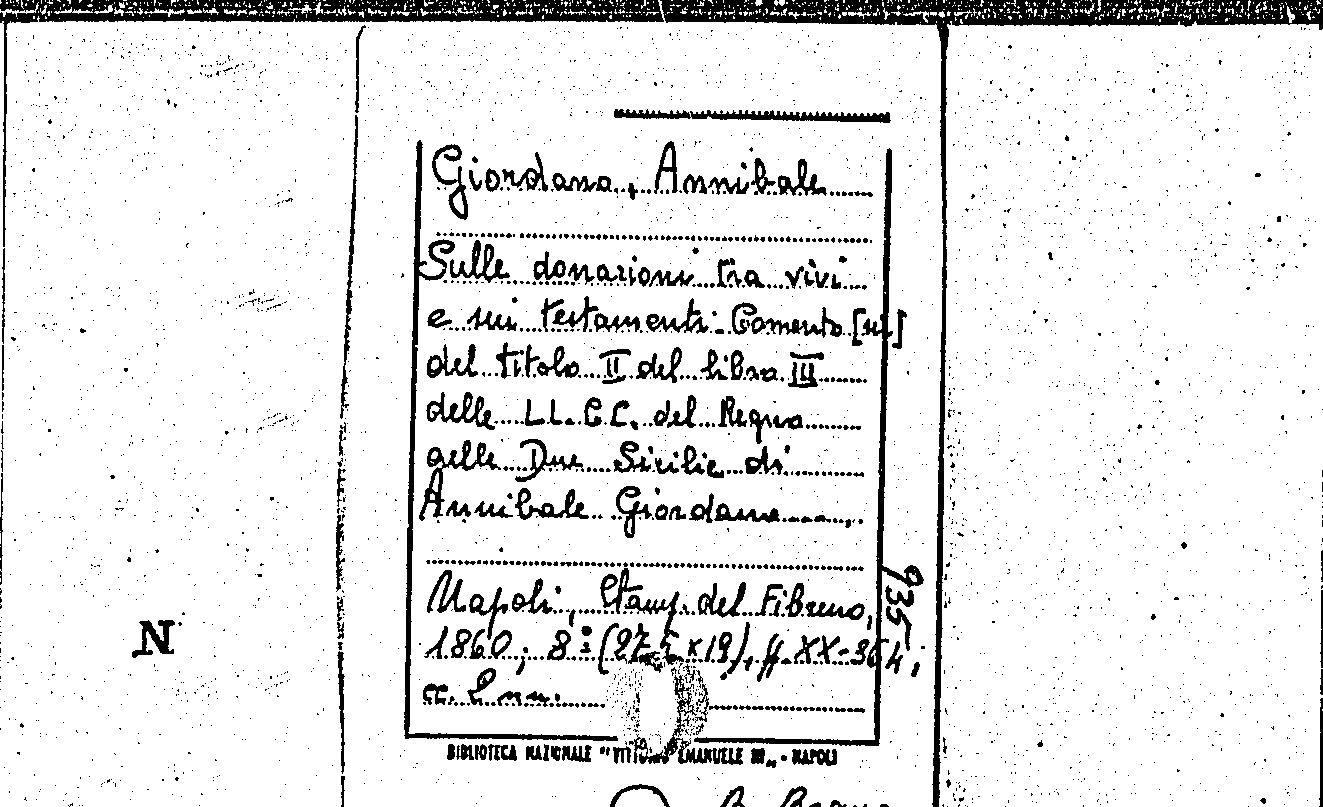 Giordano, Annibale
Sulle donazioni tra vivi
e sui testamenti. Comento [sic]
del titolo II del libro III
delle LL. CC. del Regno
delle Due Sicilie di
Annibale Giordano
Napoli, Stamp. del Fibreno,
1860; 8º (27,5 x 19), pp. XX-364;
cc. 2 nn.
935
N
BIBLIOTECA NAZIONALE "VITTORIO EMANUELE III" - NAPOLI